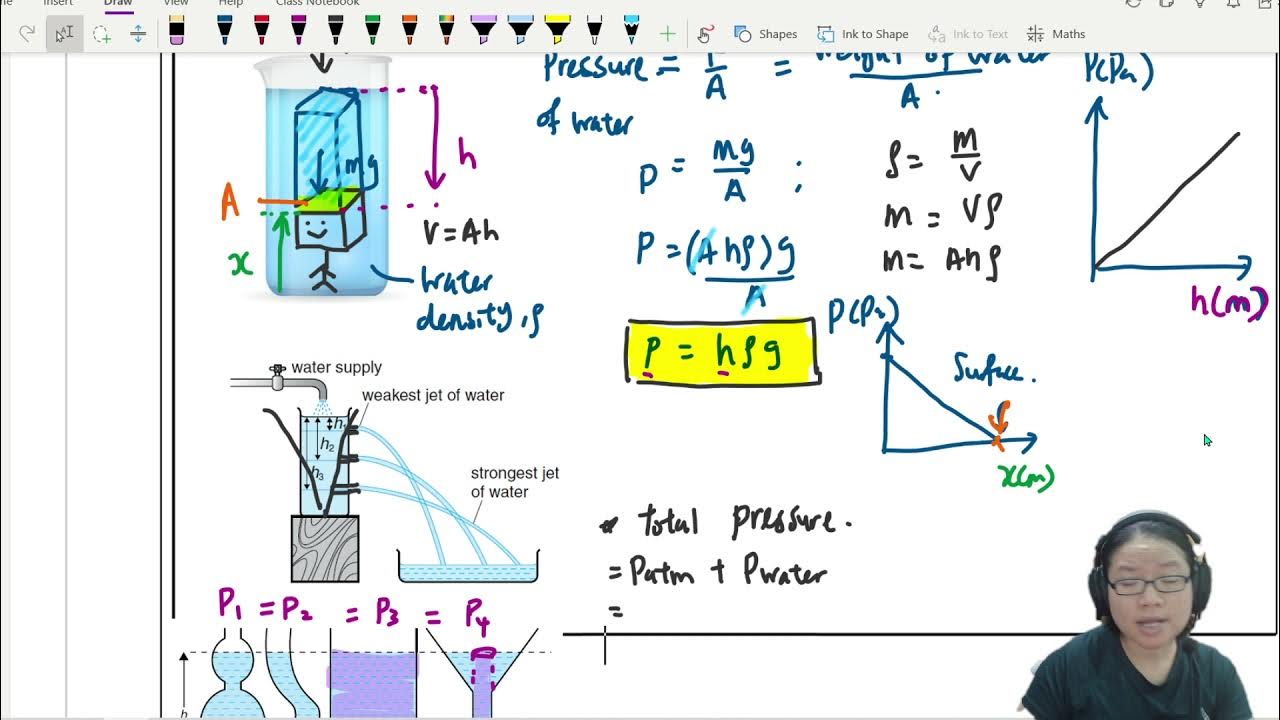 Insert
Draw
View
Help
Class Notebook
Shapes
Ink to Shape
Ink to Text
Maths
Pressure = F/A = weight of water/A.
of water
P = mg/A ;
P = (Ahρ)g/A
P = hρg
ρ = m/V
m = Vρ
m = Ahρ
P(Pa)
h(m)
P(Pa)
Surface.
x(m)
h
mg
A
x
V = Ah
Water
density, ρ
water supply
weakest jet of water
h₁
h₂
h₃
strongest jet
of water
* Total pressure.
= Patm + Pwater
=
P₁ = P₂ = P₃ = P₄
h